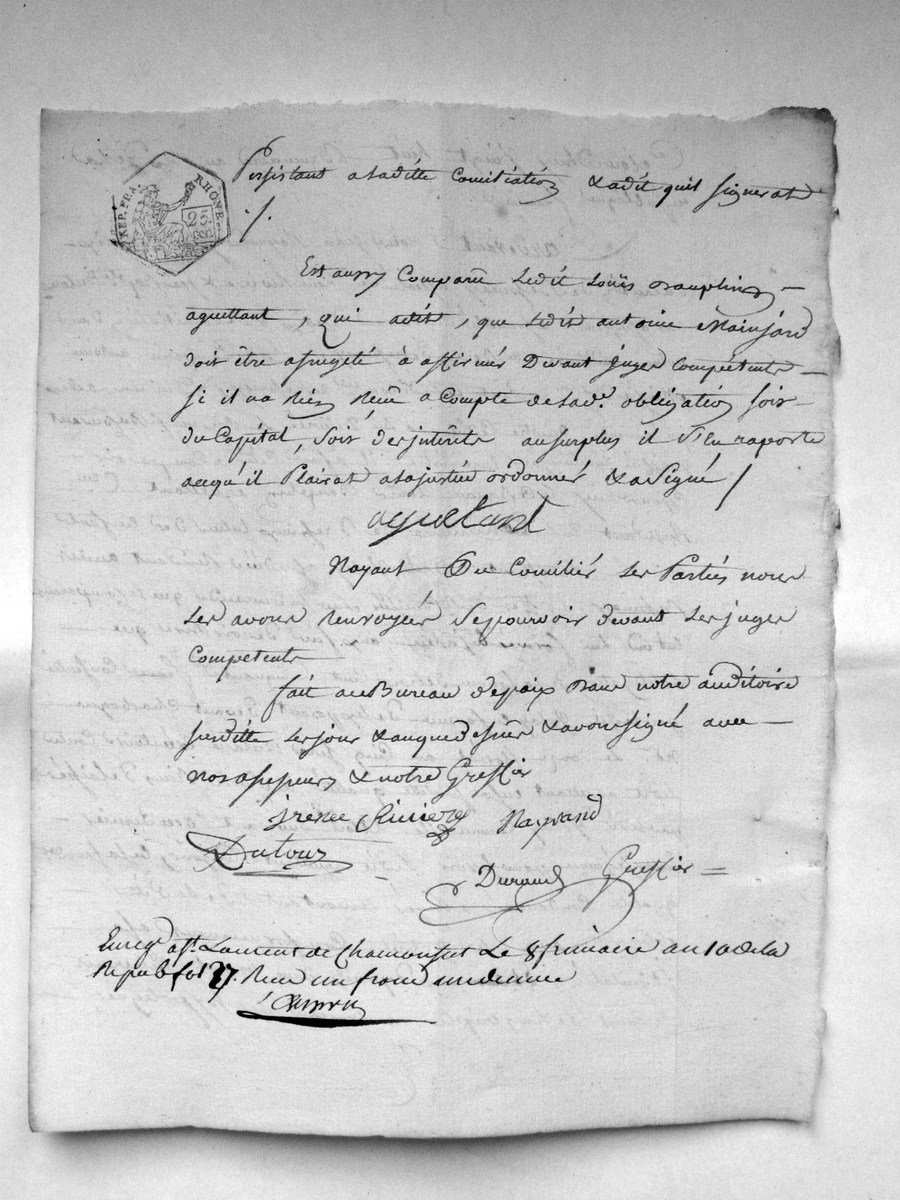 REP. FRA. RHONE
25 cen
Persistant a laditte Conciliation & adit quil Signerat
./.
Est aussy Comparu Ledit Loüis Dauphin
aguettant, qui adit, que Ledit antoine Mainjard
doit être assugeté à affirmér Devant juges Compétents
Si il na Rien Recû a Compte de Lade. obligation Soit
du Capital, Soit des jnterêts au Surplus il s'En raporte
acequ'il Plairat alajustice ordonnér & a Signé /
aguetant
Nayant Pu Conciliér Les Parties nous
Les avons Renvoyées Se pourvoir devant Les juges
Competents
fait au Bureau de paix Dans notre auditoire
Susditte Les jour & an que dessus & avons Signé avec
nos assesseurs & notre Greffier
jrenée Riviere Raynand
Dutour
Durand Greffier
Enregé. a St. Laurent de Chamousset Le 8 frimaire an 10 de la
Repub fo 137. Recu un franc un decime